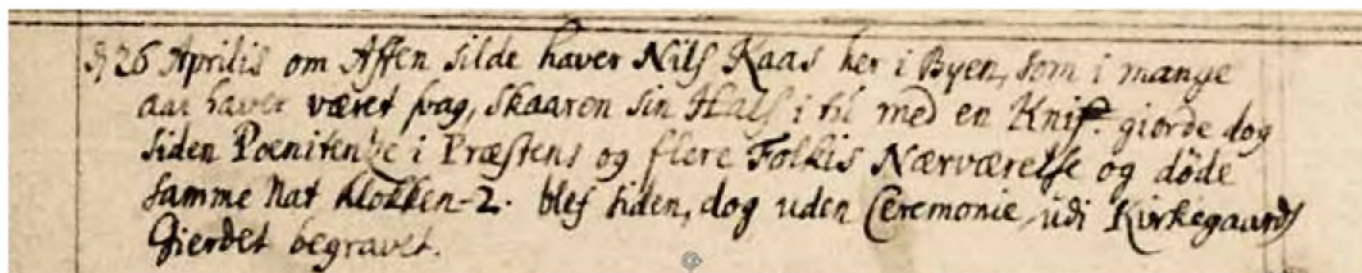 d 26 Aprilis om Afften silde haver Nils Kaas her i Byen, som i mange
aar haver været svag, skaaren sin Hals i til med en Knif. giorde dog
siden Poenitentze i Præstens og flere Folkis Nærværelse og døde
samme Nat klokken-2. blef siden, dog uden Ceremonie, udi Kirkegaards
Gierdet begravet.